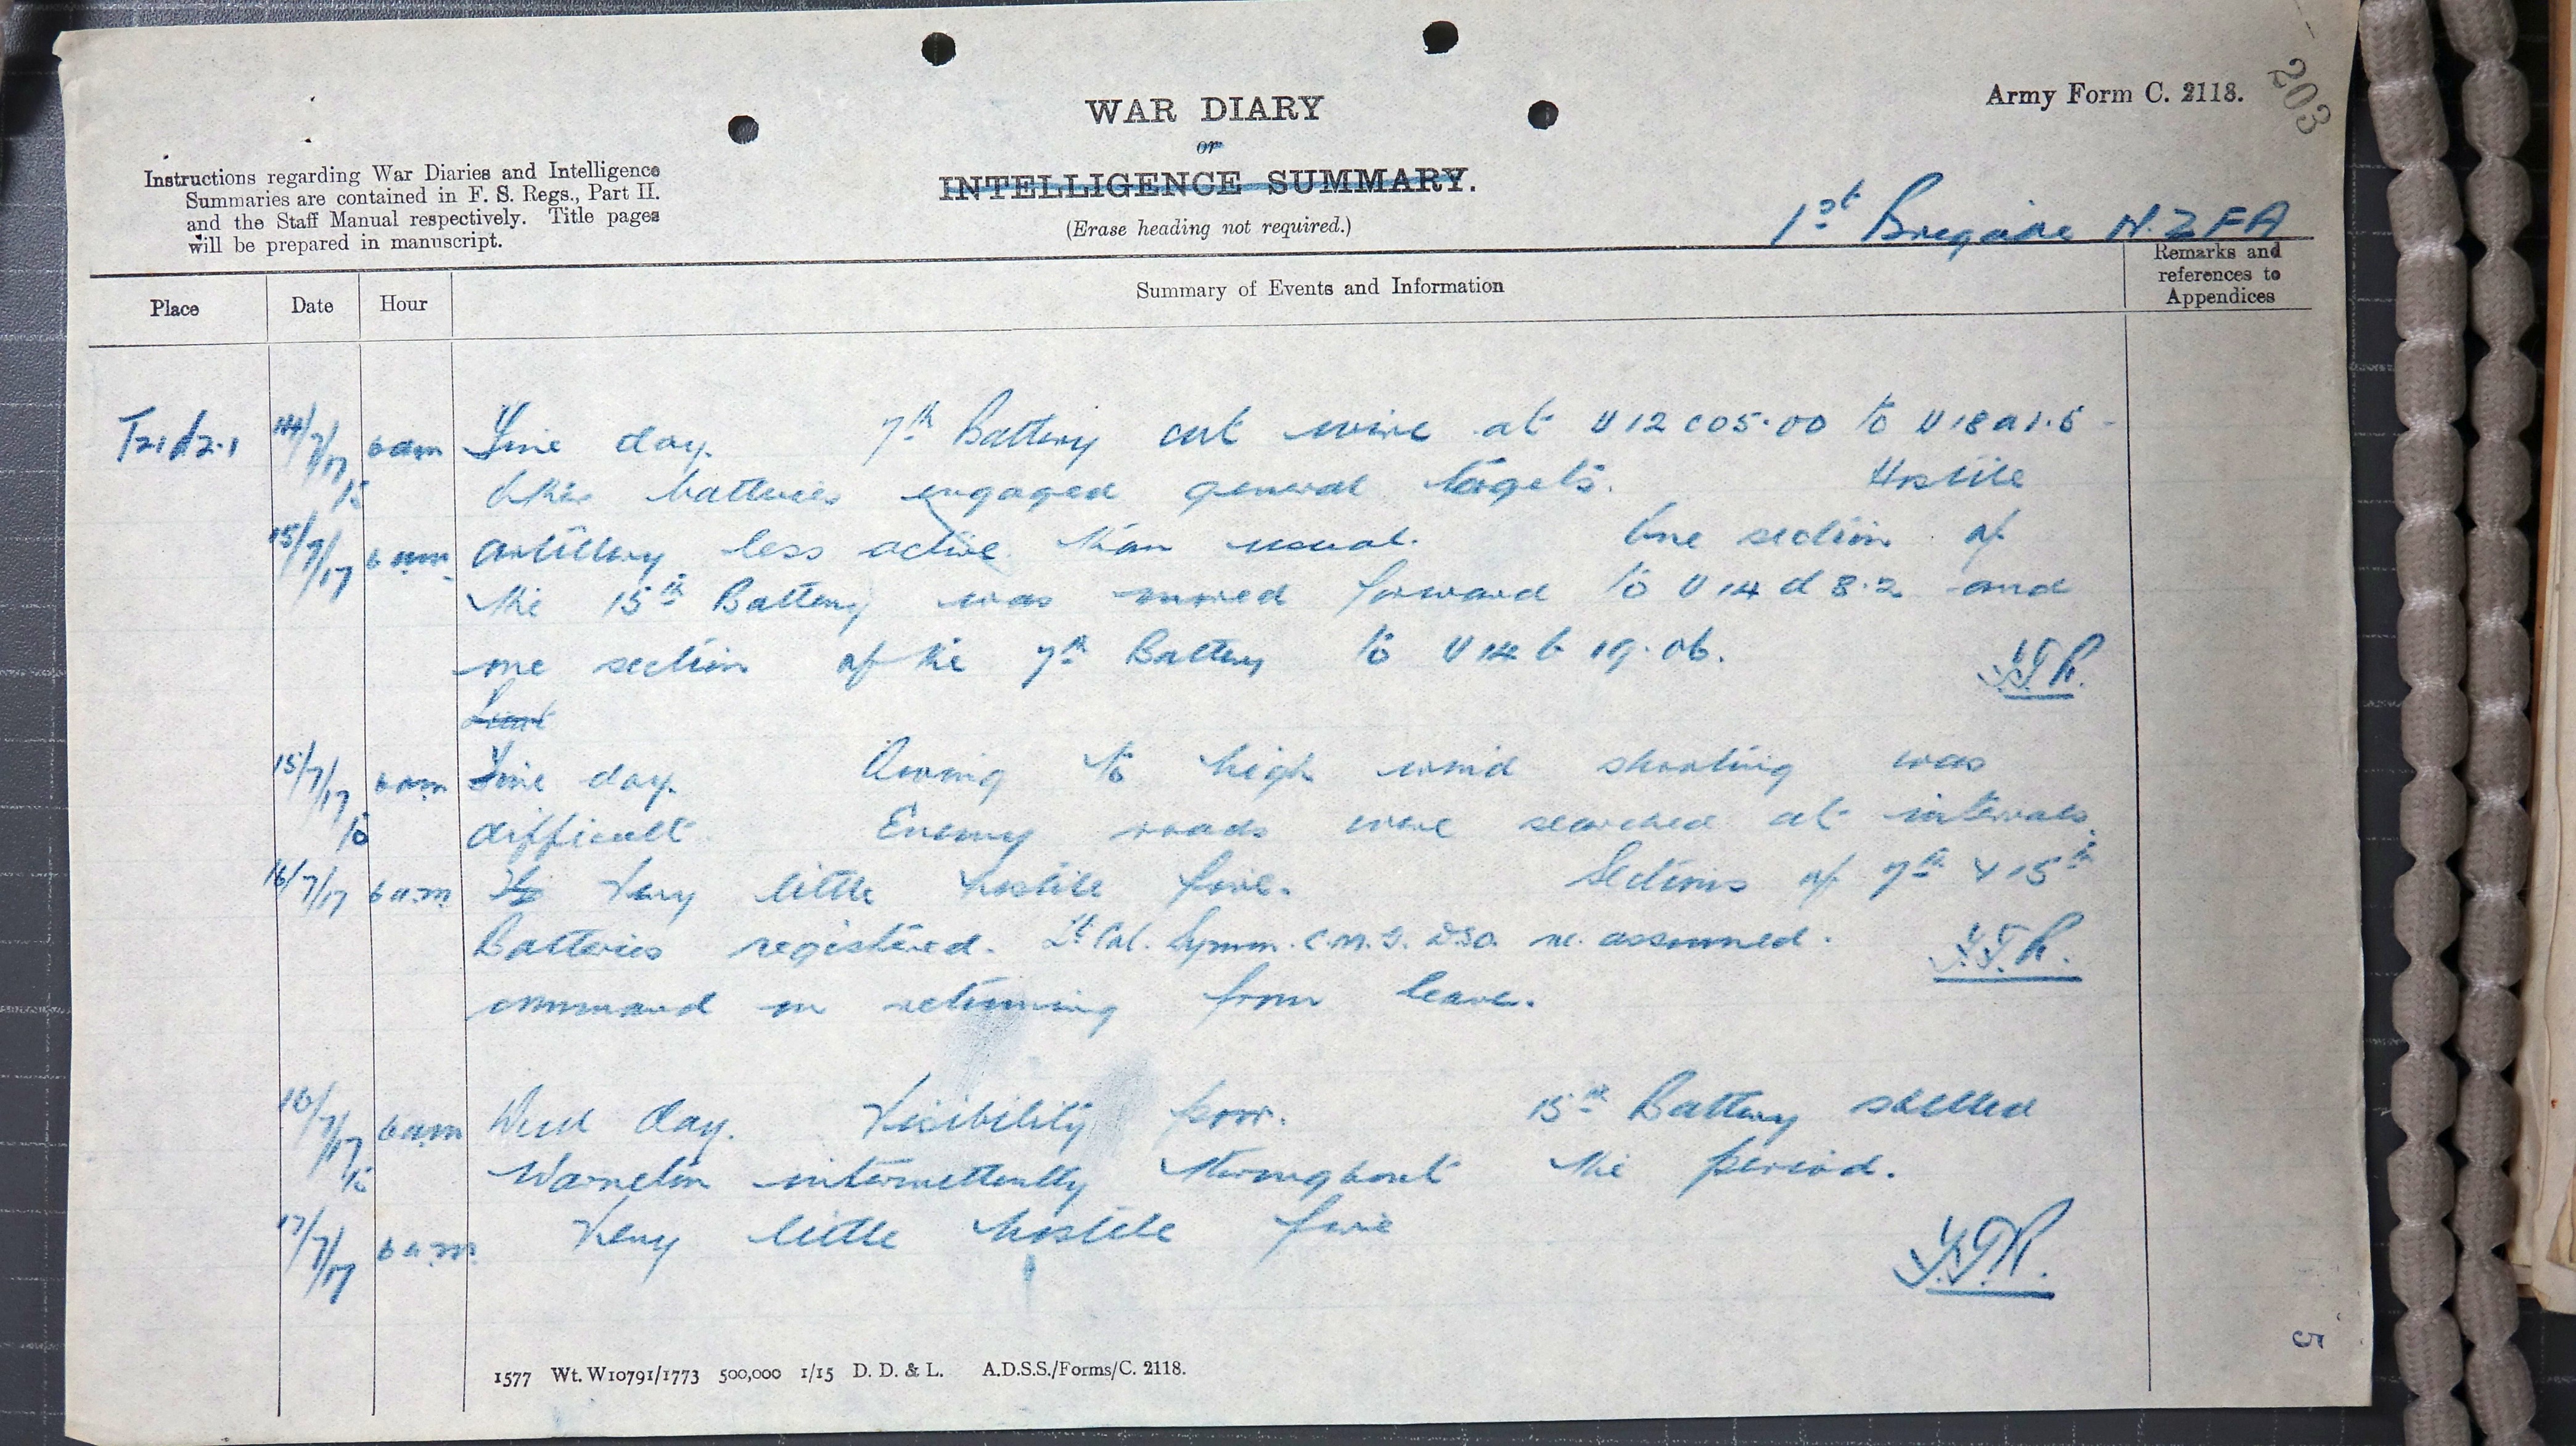 203
Army Form C. 2118.
WAR DIARY
or
INTELLIGENCE SUMMARY.
(Erase heading not required.)
Instructions regarding War Diaries and Intelligence
Summaries are contained in F. S. Regs., Part II.
and the Staff Manual respectively. Title pages
will be prepared in manuscript.
1st Brigade N.Z FA
Place Date Hour Summary of Events and Information Remarks and references to Appendices
T21d2.1 14/7/17 6 am Fine day. 7th Battery cut wire at U 12 c 05.00 to U 18 a 1.5 -
to Other batteries engaged general targets. Hostile
15/7/17 6 am artillery less active than usual. One section of
the 15th Battery was moved forward to U 14 d 8.2 and
one section of the 7th Battery to U 14 b 19.06.
15/7/17 6 am Fine day. Owing to high wind shooting was
to difficult Enemy roads were searched at intervals.
16/7/17 6 a.m Very little hostile fire. Sections of 7th & 15th
Batteries registered. Lt Col. Symon. C.M.G. DSO. re. assumed.
command on returning from leave.
16/7/17 6 am Dull day. Visibility poor. 15th Battery shelled
to Warneton intermittently throughout the period.
17/7/17 6 a.m. Very little hostile fire
5
1577 Wt. W10791/1773 500,000 1/15 D. D. & L. A.D.S.S./Forms/C. 2118.